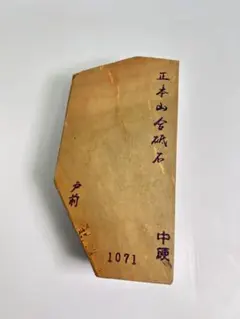 正本山合砥石
中硬
戸前
1071